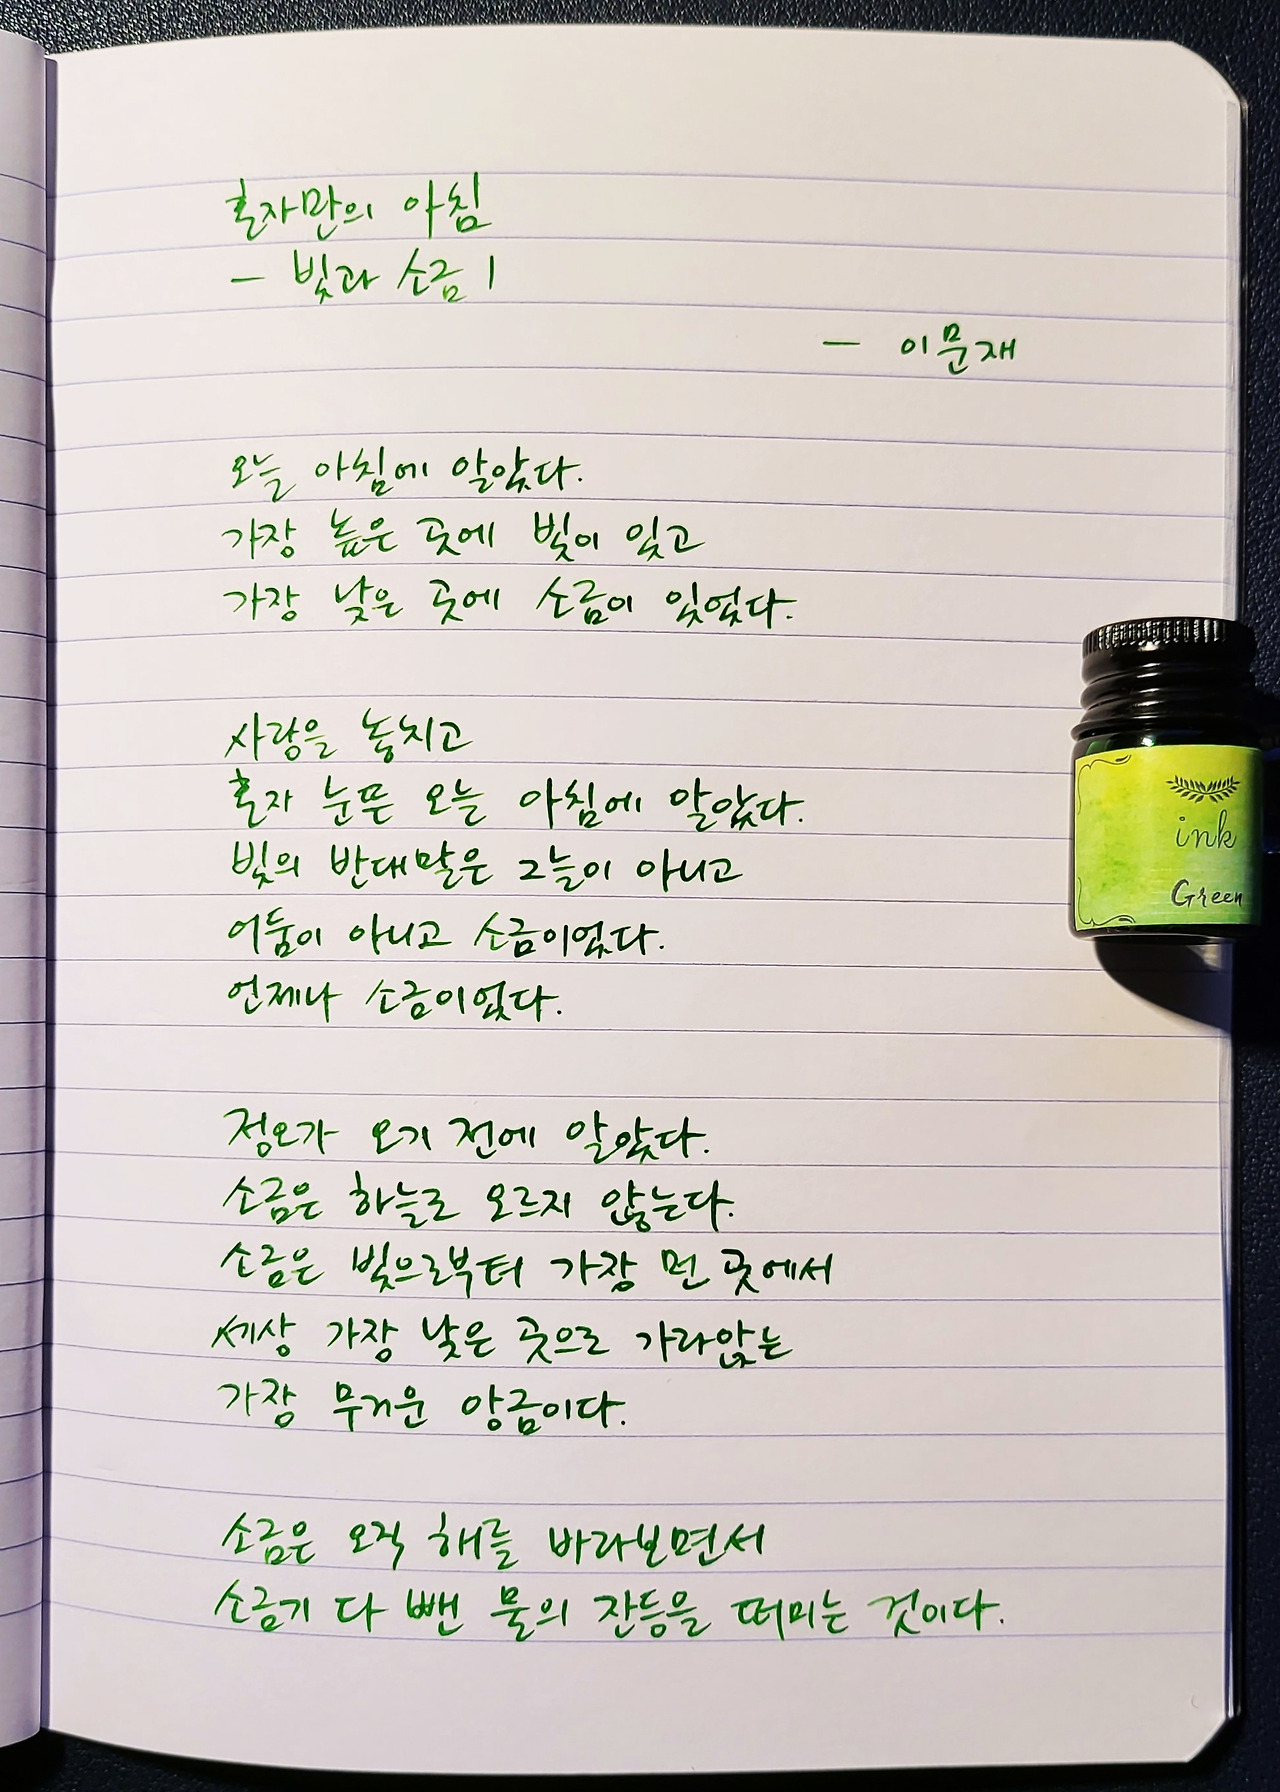 혼자만의 아침
- 빛과 소금 1
- 이문재
오늘 아침에 알았다.
가장 높은 곳에 빛이 있고
가장 낮은 곳에 소금이 있었다.
사랑을 놓치고
혼자 눈뜬 오늘 아침에 알았다.
빛의 반대말은 그늘이 아니고
어둠이 아니고 소금이었다.
언제나 소금이었다.
정오가 오기 전에 알았다.
소금은 하늘로 오르지 않는다.
소금은 빛으로부터 가장 먼 곳에서
세상 가장 낮은 곳으로 가라앉는
가장 무거운 앙금이다.
소금은 오직 해를 바라보면서
소금기 다 뺀 물의 잔등을 떠미는 것이다.
ink
Green